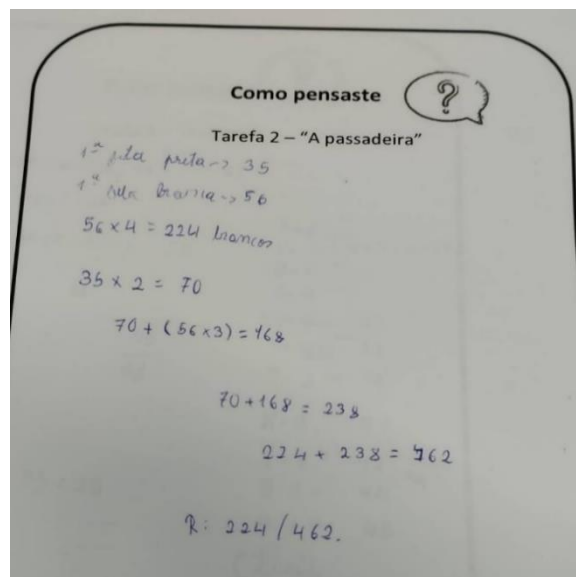 Como pensaste
?
Tarefa 2 – “A passadeira”
1ª fila preta -> 35
1ª fila branca -> 56
56 × 4 = 224 brancos
35 × 2 = 70
70 + (56×3) = 168
70+168 = 238
224 + 238 = 462
R: 224 / 462.